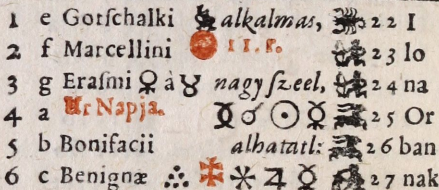 1 e Gotſchalki alkalmas, 22 I
2 f Marcellini 11. P. 23 lo
3 g Eraſmi ♀ à ♉ nagy ſzeel, 24 na
4 a Úr Napja. ☿ ♂ ☉ ☿ 25 Or
5 b Bonifacii alhatatl: 26 ban
6 c Benignæ 27 nak